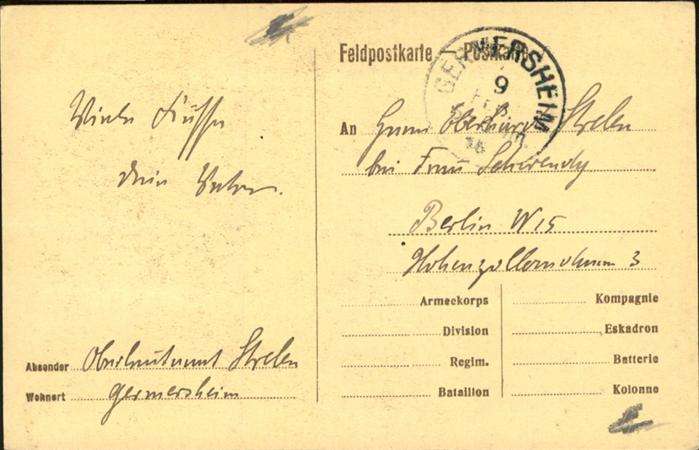 Feldpostkarte — Postkarte
GERMERSHEIM
9
FEB.
An Herrn Eberhard Strelen
bei Frau
Berlin W 15
Hohenzollerndamm 3
Viele Küsse
dein Vater.
Armeekorps
Division
Regim.
Bataillon
Kompagnie
Eskadron
Batterie
Kolonne
Absender Oberleutnant Strelen
Wohnort Germersheim